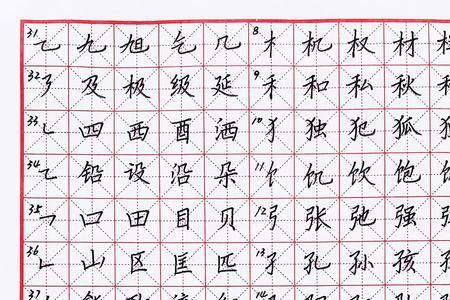 31 ㇈ 九 旭 乞 几 8 木 机 权 材
32 ㇋ 及 极 级 延 9 禾 和 私 秋
33 ㇄ 四 西 酉 洒 10 犭 独 犯 狐
34 铅 设 沿 朵 11 饣 饥 饮 饱
35 ㇕ 口 田 目 贝 12 弓 张 弛 强
36 ㇗ 山 区 匡 匹 13 子 孔 孙 孩
37 14